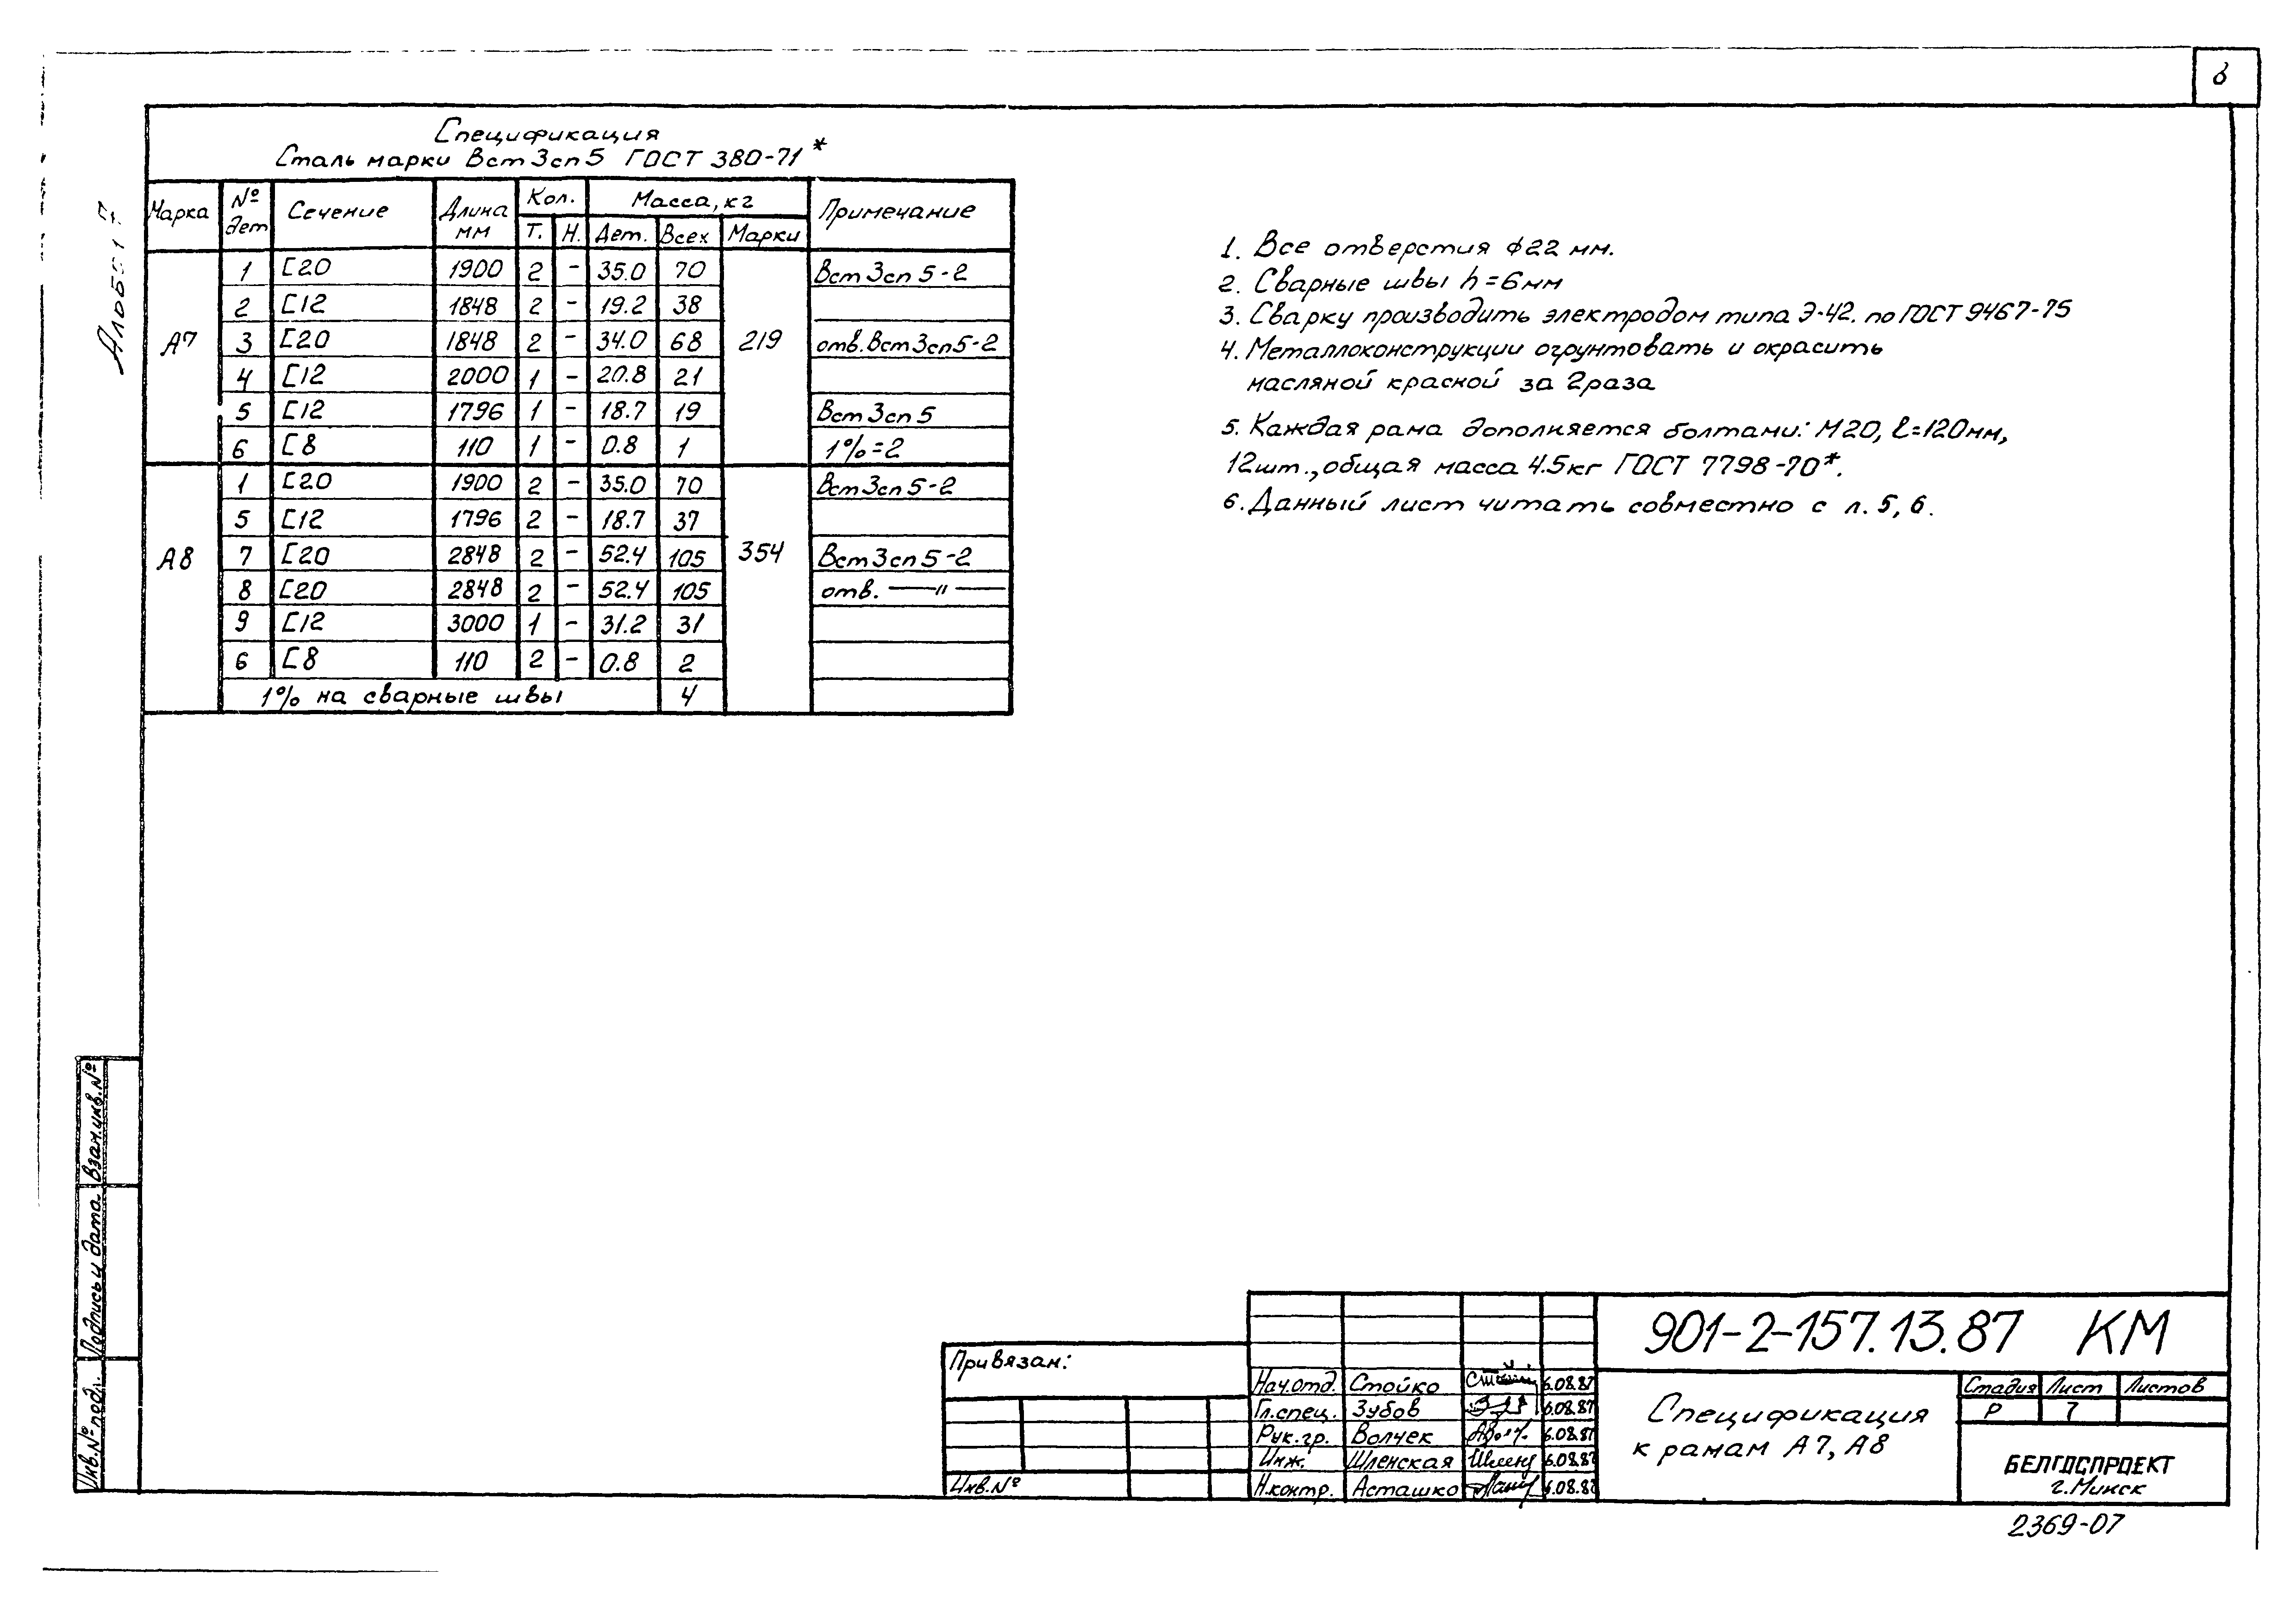 8
Альбом 7
Спецификация
Сталь марки Вст3сп5 ГОСТ 380-71*
Марка № дет Сечение Длина мм Кол. Масса, кг Примечание
Т. Н. Дет. Всех Марки
А7 1 [20 1900 2 - 35.0 70 219 Вст3сп5-2
2 [12 1848 2 - 19.2 38
3 [20 1848 2 - 34.0 68 отв. Вст3сп5-2
4 [12 2000 1 - 20.8 21
5 [12 1796 1 - 18.7 19 Вст3сп5
6 [8 110 1 - 0.8 1 1%=2
А8 1 [20 1900 2 - 35.0 70 354 Вст3сп5-2
5 [12 1796 2 - 18.7 37
7 [20 2848 2 - 52.4 105 Вст3сп5-2
8 [20 2848 2 - 52.4 105 отв. —"—
9 [12 3000 1 - 31.2 31
6 [8 110 2 - 0.8 2
1% на сварные швы 4
1. Все отверстия ф22 мм.
2. Сварные швы h=6мм
3. Сварку производить электродом типа Э-42. по ГОСТ 9467-75
4. Металлоконструкции огрунтовать и окрасить
масляной краской за 2 раза
5. Каждая рама дополняется болтами: М20, ℓ=120мм,
12шт., общая масса 4.5кг ГОСТ 7798-70*.
6. Данный лист читать совместно с л. 5, 6.
Взам.инв.№
Подпись и дата
Инв.№ подл.
Привязан:
Инв.№
Нач.отд. Стойко 6.08.87
Гл.спец. Зубов 6.08.87
Рук.гр. Волчек 6.08.87
Инж. Шленская 6.08.87
Н.контр. Асташко 6.08.87
901-2-157.13.87 КМ
Спецификация
к рамам А7, А8
Стадия Лист Листов
Р 7
БЕЛГОСПРОЕКТ
г. Минск
2369-07